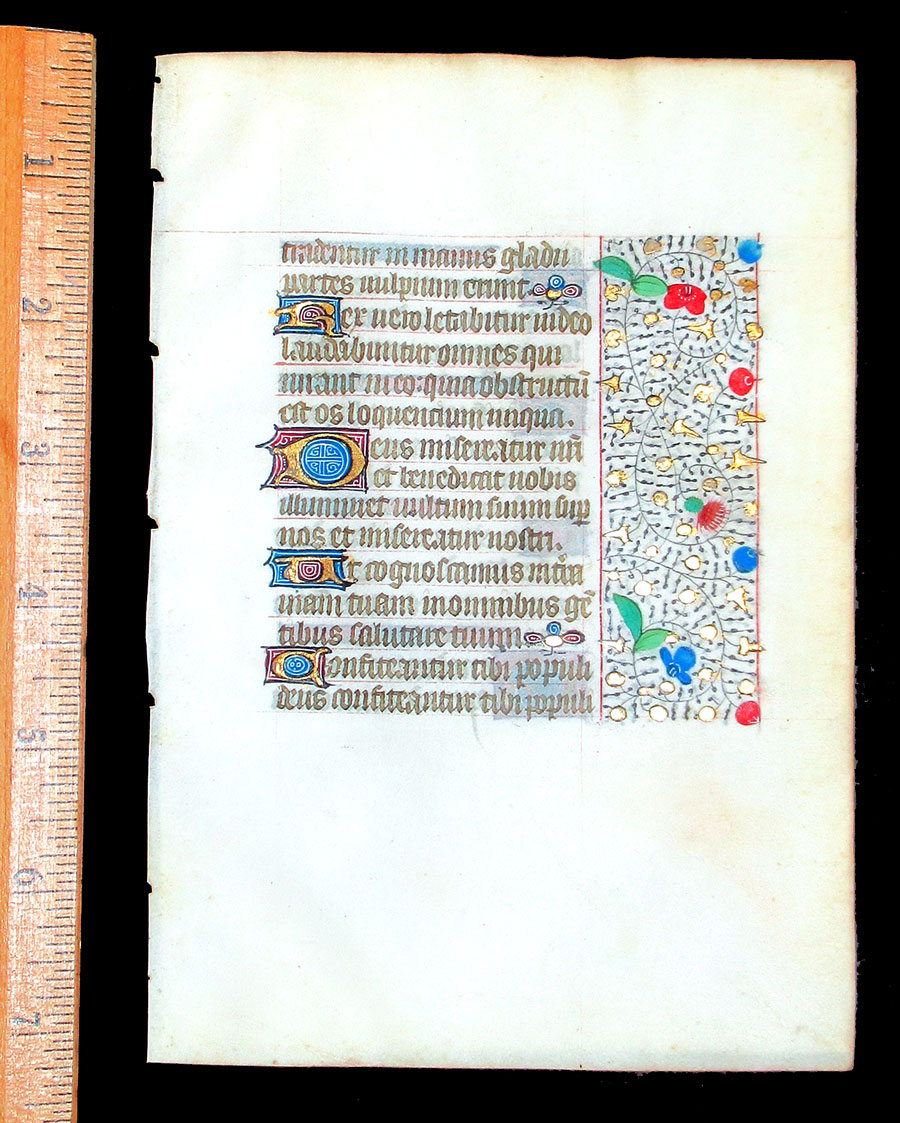 tradentur in manus gladii
partes uulpium erunt
Rex uero letabitur in deo
laudabuntur omnes qui
iurant in eo: quia obstructū
est os loquentium iniqua.
Deus misereatur nr̄i
et benedicat nobis
illuminet uultum suum sup
nos et misereatur nostri.
Ut cognoscamus in t̄ra
uiam tuam in omnibus gē
tibus salutare tuum
Confiteantur tibi populi
deus confiteantur tibi populi
1
2
3
4
5
6
7